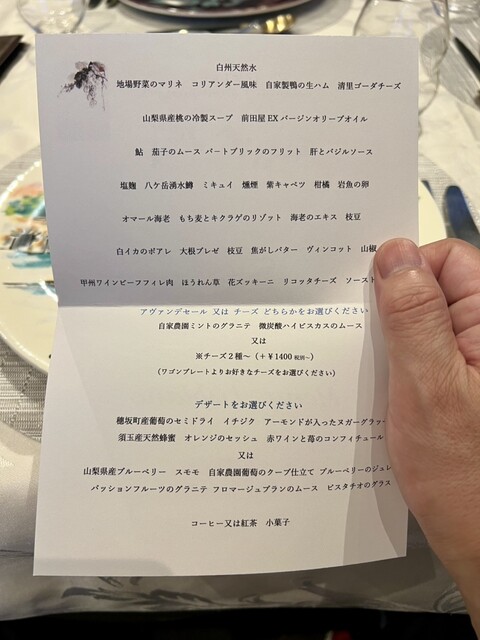 白州天然水
地場野菜のマリネ コリアンダー風味 自家製鴨の生ハム 清里ゴーダチーズ
山梨県産桃の冷製スープ 前田屋EXバージンオリーブオイル
鮎 茄子のムース パートブリックのフリット 肝とバジルソース
塩麹 八ケ岳湧水鱒 ミキュイ 燻煙 紫キャベツ 柑橘 岩魚の卵
オマール海老 もち麦とキクラゲのリゾット 海老のエキス 枝豆
白イカのポアレ 大根ブレゼ 枝豆 焦がしバター ヴィンコット 山椒
甲州ワインビーフフィレ肉 ほうれん草 花ズッキーニ リコッタチーズ ソースト
アヴァンデセール 又は チーズ どちらかをお選びください
自家農園ミントのグラニテ 微炭酸ハイビスカスのムース
又は
※チーズ2種～（+￥1400 税別～）
（ワゴンプレートよりお好きなチーズをお選びください）
デザートをお選びください
穂坂町産葡萄のセミドライ イチジク アーモンドが入ったヌガーグラッ
須玉産天然蜂蜜 オレンジのセッシュ 赤ワインと苺のコンフィチュール
又は
山梨県産ブルーベリー スモモ 自家農園葡萄のクープ仕立て ブルーベリーのジュレ
パッションフルーツのグラニテ フロマージュブランのムース ピスタチオのグラス
コーヒー又は紅茶 小菓子